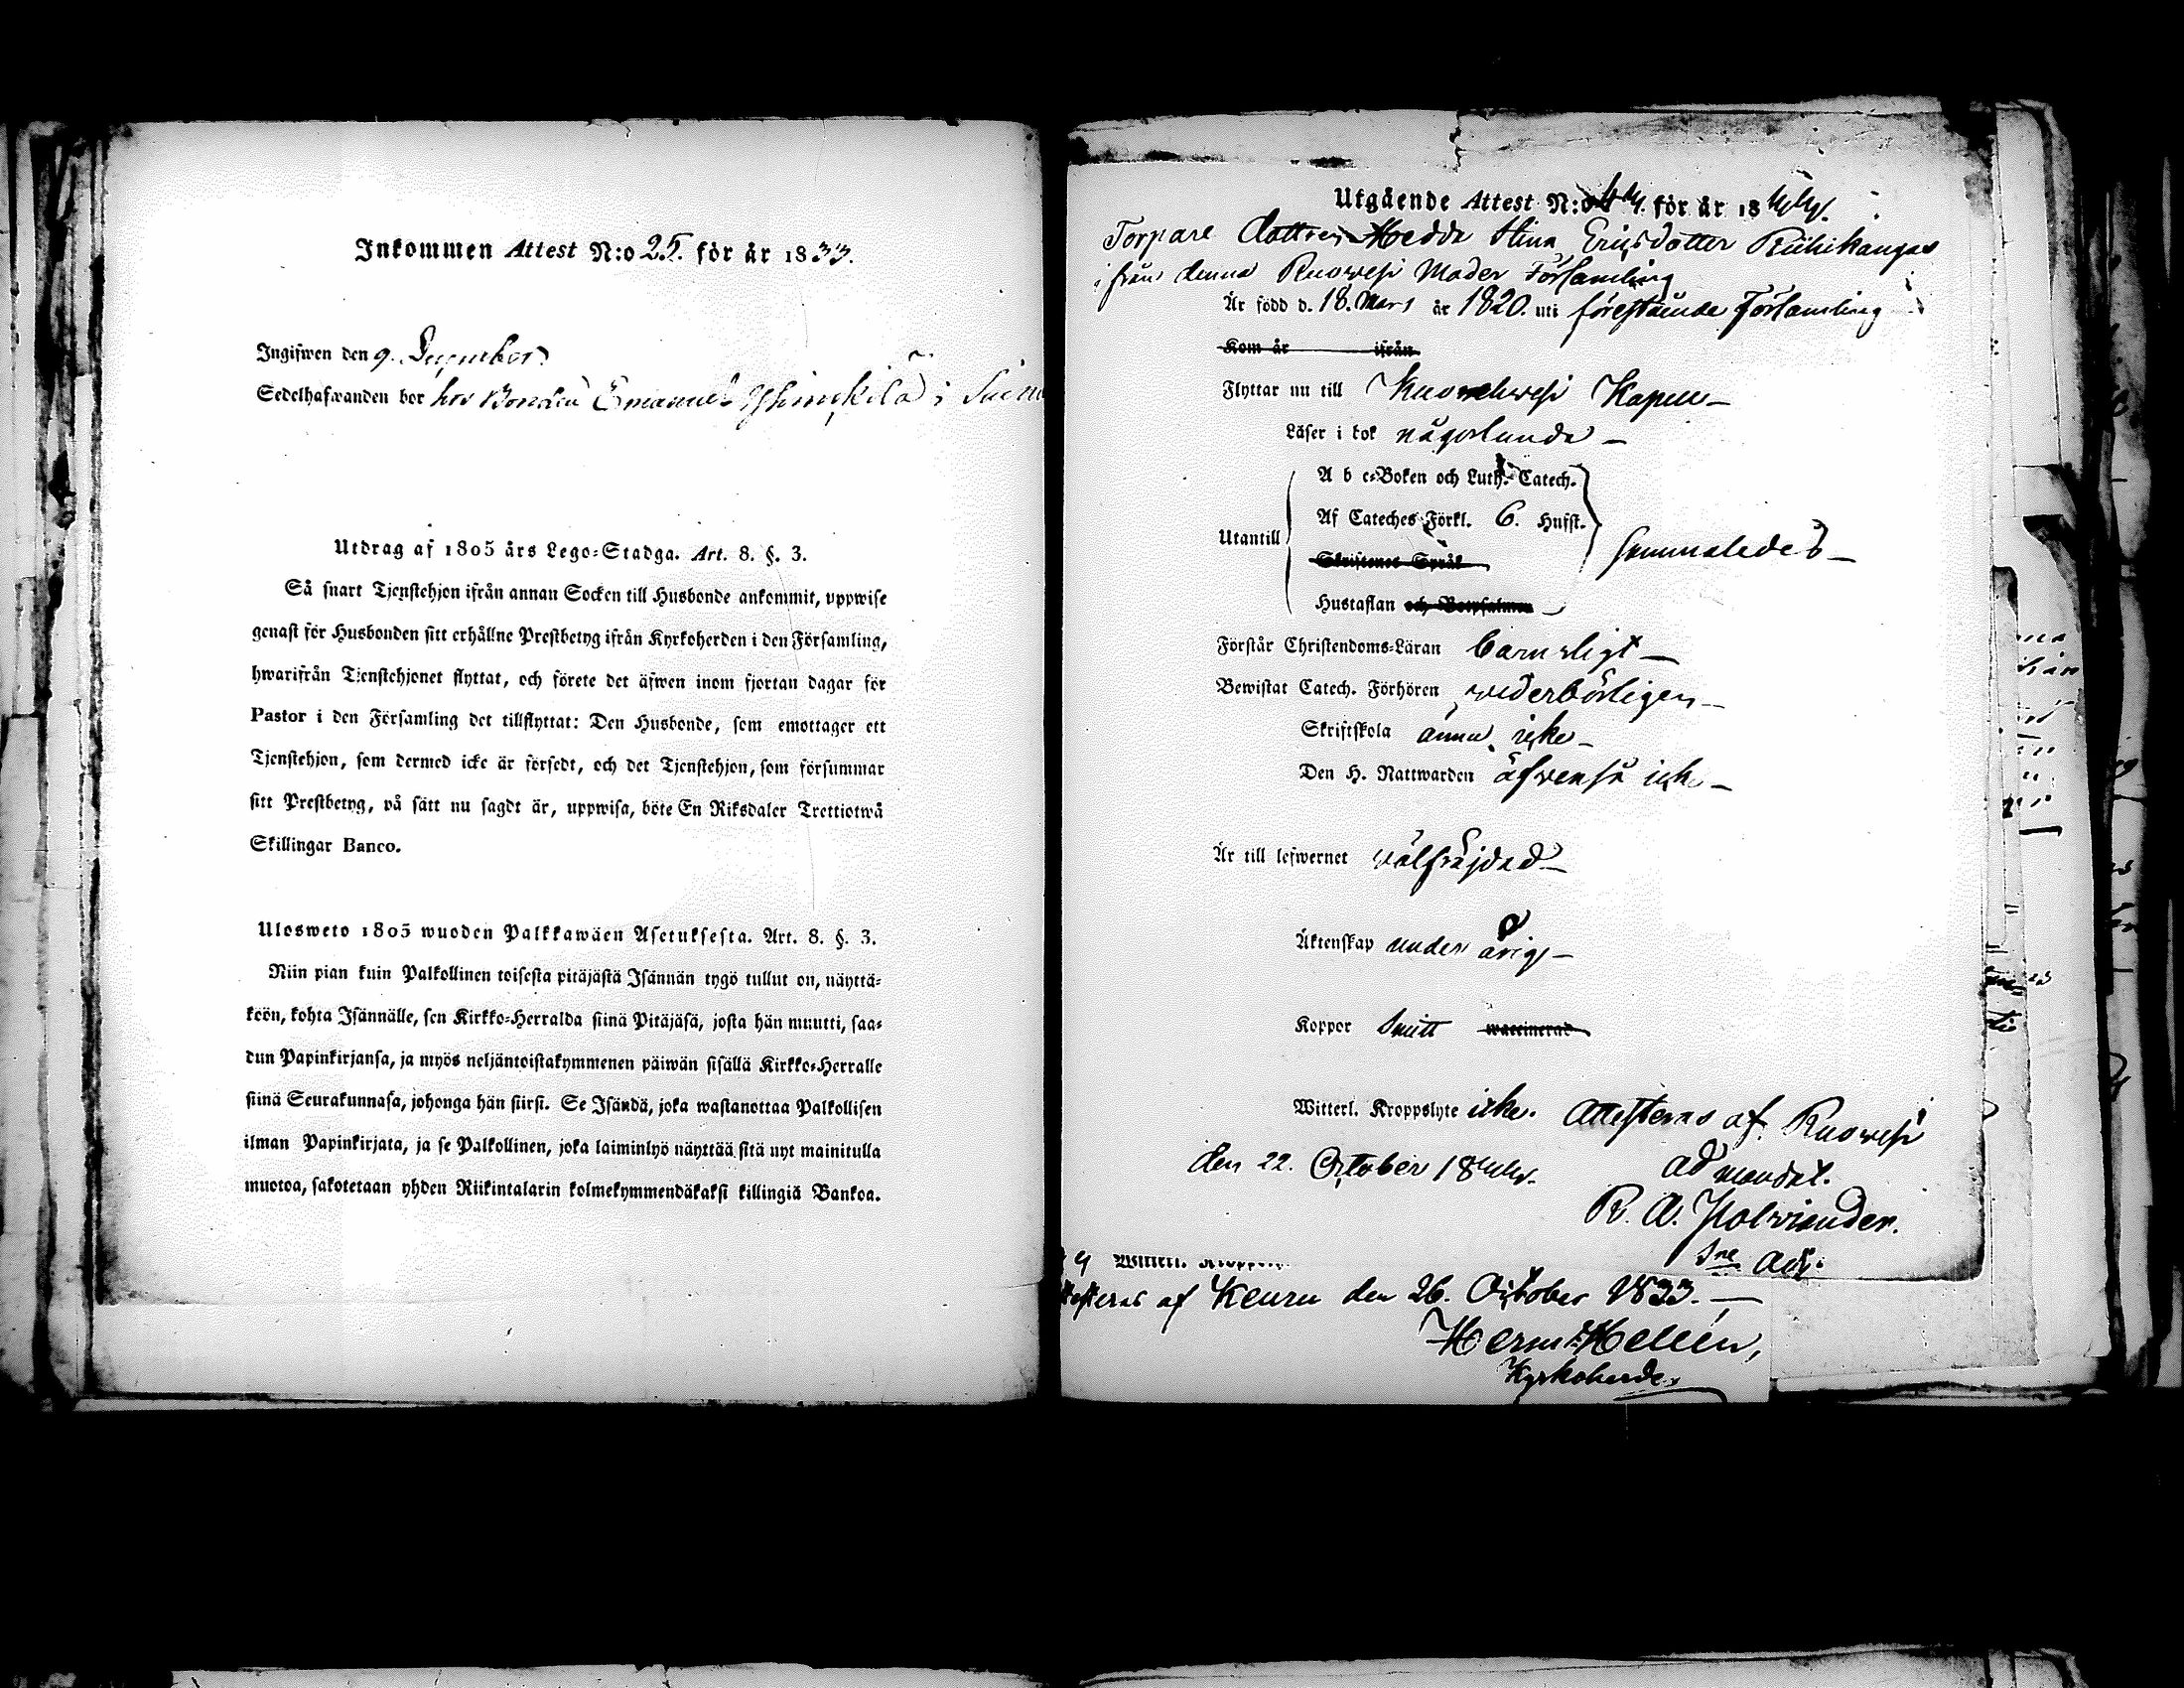 Inkommen Attest N:o 25. för år 1833.
Ingifwen den 9. December
Sedelhafwanden bor hos Bonden Emanuel i
Utdrag af 1805 års Lego-Stadga. Art. 8. §. 3.
Så snart Tjenstehjon ifrån annan Socken till Husbonde ankommit, uppwise
genast för Husbonden sitt erhållne Prestbetyg ifrån Kyrkoherden i den Församling,
hwarifrån Tjenstehjonet flyttat, och förete det äfwen inom fjortan dagar för
Pastor i den Församling det tillflyttat: Den Husbonde, som emottager ett
Tjenstehjon, som dermed icke är försedt, och det Tjenstehjon, som försummar
sitt Prestbetyg, på sätt nu sagdt är, uppwisa, böte En Riksdaler Trettiotwå
Skillingar Banco.
Ulosweto 1805 wuoden Palkkawäen Asetuksesta. Art. 8. §. 3.
Niin pian kuin Palkollinen toisesta pitäjästä Isännän tygö tullut on, näyttä-
köön, kohta Isännälle, sen Kirkko-Herralda siinä Pitäjäsä, josta hän muutti, saa-
dun Papinkirjansa, ja myös neljäntoistakymmenen päiwän sisällä Kirkko-Herralle
siinä Seurakunnasa, johonga hän siirsi. Se Isändä, joka wastanottaa Palkollisen
ilman Papinkirjata, ja se Palkollinen, joka laiminlyö näyttää sitä nyt mainitulla
muotoa, sakotetaan yhden Riikintalarin kolmekymmendäkaksi killingiä Bankoa.
Utgående Attest N:o 44. för år 18
Torpare dottren Hedda Stina Ericsdotter Riihikangas
ifrån denna Ruowesi Moder Församling
Är född d. 18. Mars år 1820. uti förestående Församling
Kom år ifrån
Flyttar nu till Kuorehwesi Kapell
Läser i bok någorlunda
A b c-Boken och Luth. Catech.
Af Cateches Förkl. 6. Hufst.
Utantill
sammaledes
Skriftenes Språk
Hustaflan och Botpsalmen
Förstår Christendoms-Läran barnsligt
Bewistat Catech. Förhören wederbörligen
Skriftskola ännu icke
Den H. Nattwarden äfwenså icke
Är till lefwernet välfräjdad
Äktenskap under årig
Koppor haft waccinerad
Witterl. Kroppslyte icke. Attesteras af Ruowesi
den 22. October 18
ad mandat.
R. A. Holviander.
Sne Adj.
Witterl. Kropps
Attesteras af Keuru den 26. October 1833.
Herm. Hellén,
Kyrkoherde